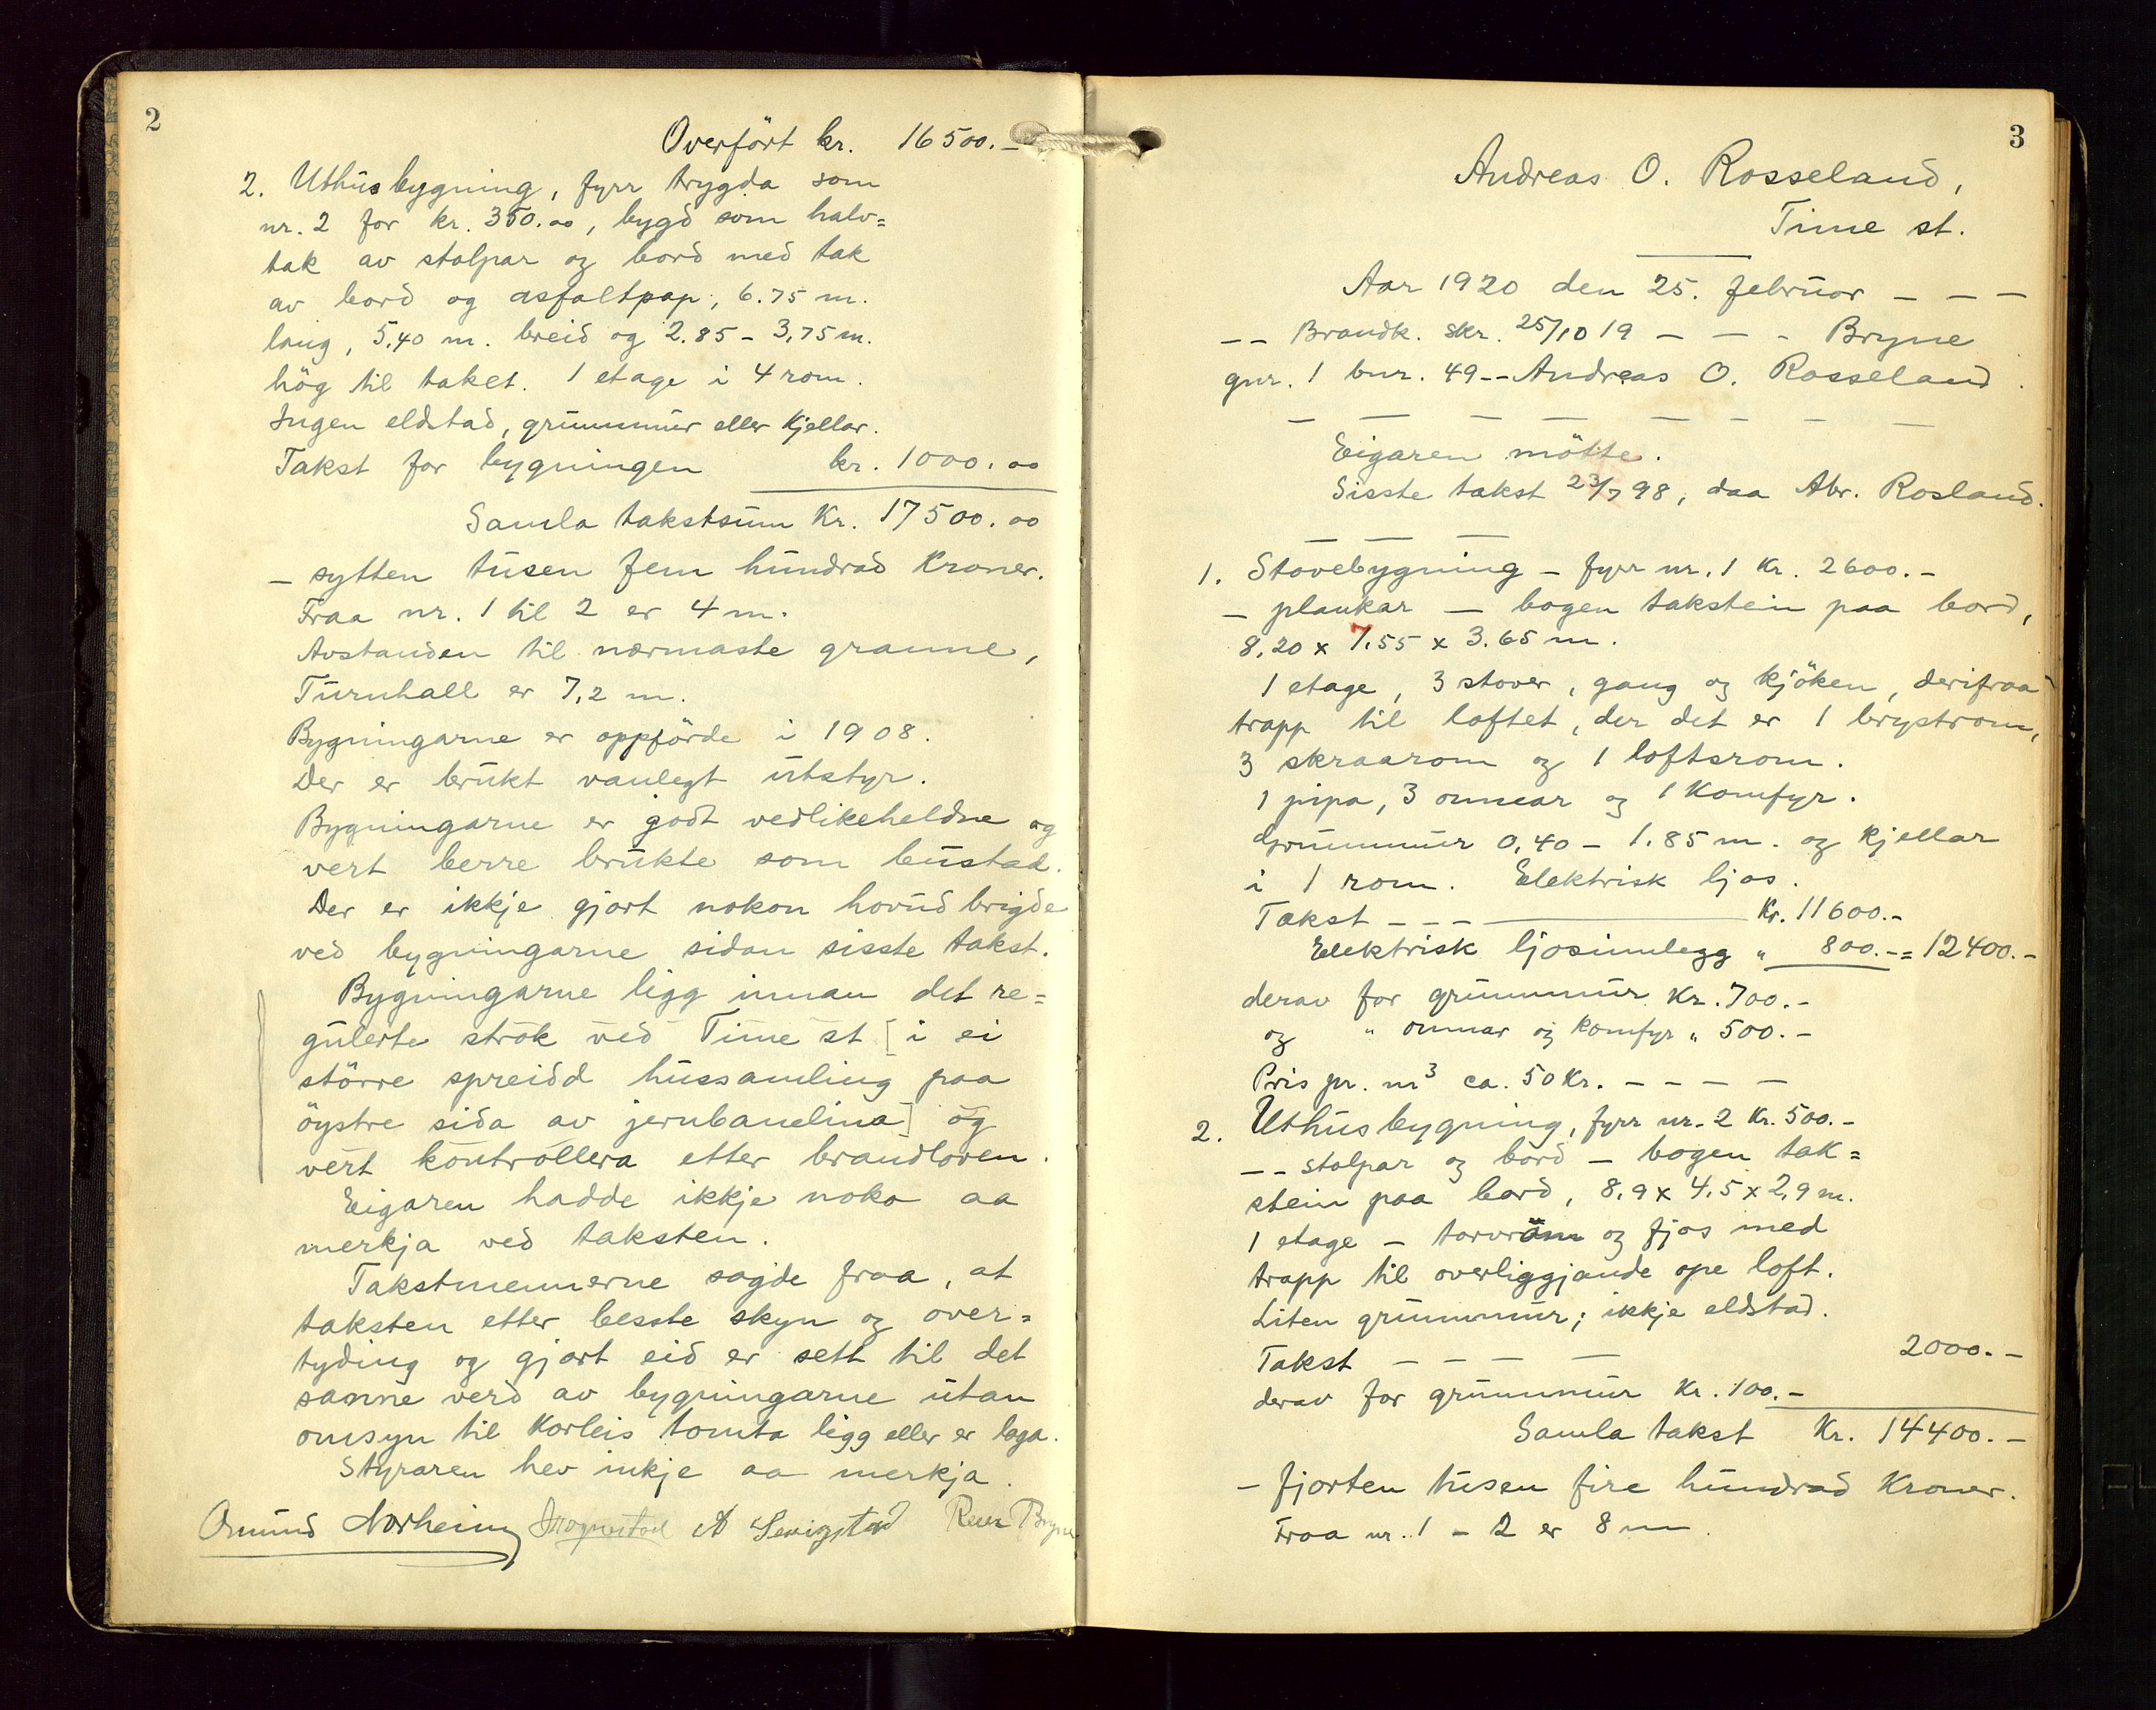 2
Overfört kr. 16500.-
2. Uthusbygning, fyrr trygda som
nr. 2 for kr. 350.00, bygd som halv=
tak av stolpar og bord med tak
av bord og asfaltpap, 6.75 m.
lang, 5,40 m. breid og 2.85 - 3,75 m.
hög til taket. 1 etage i 4 rom.
Ingen eldstad, grunnmur eller kjellar.
Takst for bygningen kr. 1000.00
Samla takstsum Kr. 17500.00
- sytten tusen fem hundrad Kroner.
Fraa nr. 1 til 2 er 4 m.
Avstanden til nærmaste granne,
Turnhall er 7,2 m.
Bygningarne er oppförde i 1908.
Der er brukt vanlegt utstyr.
Bygningarne er godt vedlikeheldne og
vert berre brukte som bustad.
Der er ikkje gjort nokon hovudbrigde
ved bygningarne sidan sisste takst.
Bygningarne ligg innan det re=
gulerte strok ved Time st [i ei
större spreidd hussamling paa
öystre sida av jernbanelina] og
vert kontrollera etter brandloven.
Eigaren hadde ikkje noko aa
merkja ved taksten.
Takstmennerne sagde fraa, at
taksten etter besste skyn og over=
tyding og gjort eid er sett til det
sanne verd av bygningarne utan
omsyn til korleis tomta ligg eller er laga.
Styraren hev inkje aa merkja.
Omund Norheim A Serigstad Reier Bryne
3
Andreas O. Rosseland,
Time st.
Aar 1920 den 25. februar - - -
-- Brandk. skr. 25/10 19 - - - Bryne
gnr. 1 bnr. 49 -- Andreas O. Rosseland.
- - - - - - - -
Eigaren mötte.
Sisste takst 23/7 98, daa Abr. Rosland.
- - -
1. Stovebygning - fyrr nr. 1 Kr. 2600.-
- plankar - bogen takstein paa bord,
8,20 x 7,55 x 3.65 m.
1 etage, 3 stover, gang og kjöken, derifraa
trapp til loftet, der det er 1 brystrom,
3 skraarom og 1 loftsrom.
1 pipa, 3 omnar og 1 Komfyr.
Grunnmur 0,40 - 1.85 m. og kjellar
i 1 rom. Elektrisk ljos.
Takst - - - Kr. 11600.-
Elektrisk ljosinnlegg " 800.- = 12400.-
derav for grunnmur Kr. 700.-
og " omnar og komfyr " 500.-
Pris pr. m3 ca. 50 Kr. - - - -
2. Uthusbygning, fyrr nr. 2 Kr. 500.-
-- stolpar og bord - bogen tak=
stein paa bord, 8,9 x 4,5 x 2,9 m.
1 etage - torvrom og fjos med
trapp til overliggjande ope loft.
Liten grunnmur; ikkje eldstad.
Takst - - - - 2000.-
derav for grunnmur Kr. 100.-
Samla takst Kr. 14400.-
- fjorten tusen fire hundrad Kroner.
Fraa nr. 1 - 2 er 8 m.